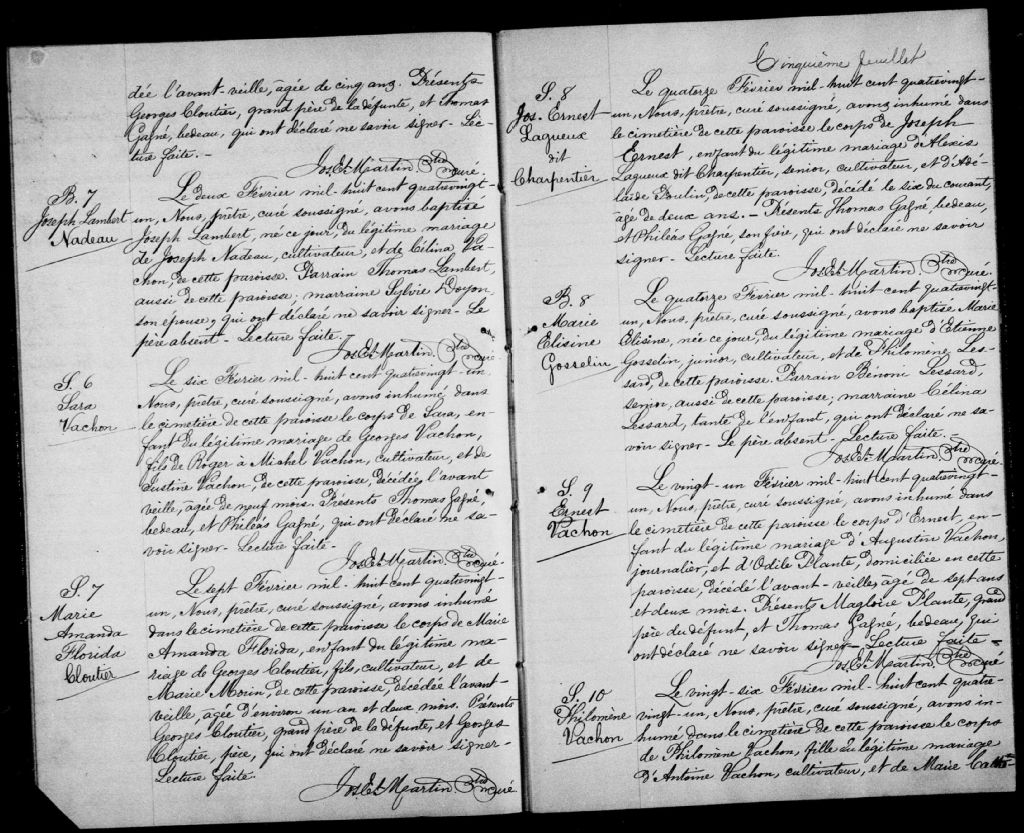 dée l'avant-veille, agée de cinq ans. Présents
Georges Cloutier, grand père de la défunte, et Thomas
Gagné, bedeau, qui ont déclaré ne savoir signer - Lec-
ture faite. -
Jos. Et. Martin Ptre curé.
B. 7
Joseph Lambert
Nadeau
Le deux Février mil-huit cent quatrevingt-
un, Nous, prêtre, curé soussigné, avons baptisé
Joseph Lambert, né ce jour, du légitime mariage
de Joseph Nadeau, cultivateur, et de Célina Va-
chon, de cette paroisse. Parrain Thomas Lambert,
aussi de cette paroisse; marraine Sylvie Doyon
son épouse, qui ont déclaré ne savoir signer - Le
père absent - Lecture faite. -
Jos. Et. Martin Ptre curé
S. 6
Sara
Vachon
Le six Février mil-huit cent quatrevingt-un
Nous, prêtre, curé soussigné, avons inhumé dans
le cimetière de cette paroisse le corps de Sara, en-
fant du légitime mariage de Georges Vachon,
fils de Roger à Michel Vachon, cultivateur, et de
Justine Vachon, de cette paroisse, décédée l'avant
veille, agée de neuf mois. Présents Thomas Gagné,
bedeau, et Philéas Gagné, qui ont déclaré ne sa-
voir signer - Lecture faite -
Jos. Et. Martin Ptre curé.
S. 7
Marie
Amanda
Florida
Cloutier
Le sept Février mil-huit cent quatrevingt-
un, Nous, prêtre, curé soussigné, avons inhumé
dans le cimetière de cette paroisse le corps de Marie
Amanda Florida, enfant du légitime ma-
riage de Georges Cloutier, fils, cultivateur, et de
Marie Morin, de cette paroisse, décédée l'avant-
veille, agée d'environ un an et deux mois. Présents
Georges Cloutier, grand père de la défunte, et Georges
Cloutier, père, qui ont déclaré ne savoir signer -
Lecture faite.
Jos. Et. Martin Ptre curé
Cinquième feuillet
S. 8
Jos. Ernest
Lagueux
dit
Charpentier
Le quatorze Février mil-huit cent quatrevingt-
un, Nous, prêtre, curé soussigné, avons inhumé dans
le cimetière de cette paroisse le corps de Joseph
Ernest, enfant du légitime mariage d'Alexis
Lagueux dit Charpentier, senior, cultivateur, et d'Adé-
laïde Poulin, de cette paroisse, décédé le six du courant,
âgé de deux ans. - Présents Thomas Gagné, bedeau,
et Philéas Gagné, son frère, qui ont déclaré ne savoir
signer - Lecture faite.
Jos. Et. Martin Ptre curé.
B. 8
Marie
Elisine
Gosselin
Le quatorze Février mil-huit cent quatrevingt-
un, Nous, prêtre, curé soussigné, avons baptisé Marie
Elisine, née ce jour, du légitime mariage d'Etienne
Gosselin, junior, cultivateur, et de Philomène Les-
sard, de cette paroisse. Parrain Bénoni Lessard,
senior, aussi de cette paroisse; marraine Célina
Lessard, tante de l'enfant, qui ont déclaré ne sa-
voir signer - Le père absent - Lecture faite. -
Jos. Et. Martin Ptre curé.
S. 9
Ernest
Vachon
Le vingt-un Février mil-huit cent quatrevingt-
un, Nous, prêtre, curé soussigné, avons inhumé dans
le cimetière de cette paroisse le corps d'Ernest, en-
fant du légitime mariage d'Augustin Vachon,
journalier, et d'Odile Plante, domiciliée en cette
paroisse, décédé l'avant-veille, âgé de sept ans
et deux mois. Présents Magloire Plante, grand
père du défunt, et Thomas Gagné, bedeau, qui
ont déclaré ne savoir signer - Lecture faite -
Jos. Et. Martin Ptre curé
S. 10
Philomène
Vachon
Le vingt-six Février mil-huit cent quatre-
vingt-un, Nous, prêtre, curé soussigné, avons in-
humé dans le cimetière de cette paroisse le corps
de Philomène Vachon, fille du légitime mariage
d'Antoine Vachon, cultivateur, et de Marie